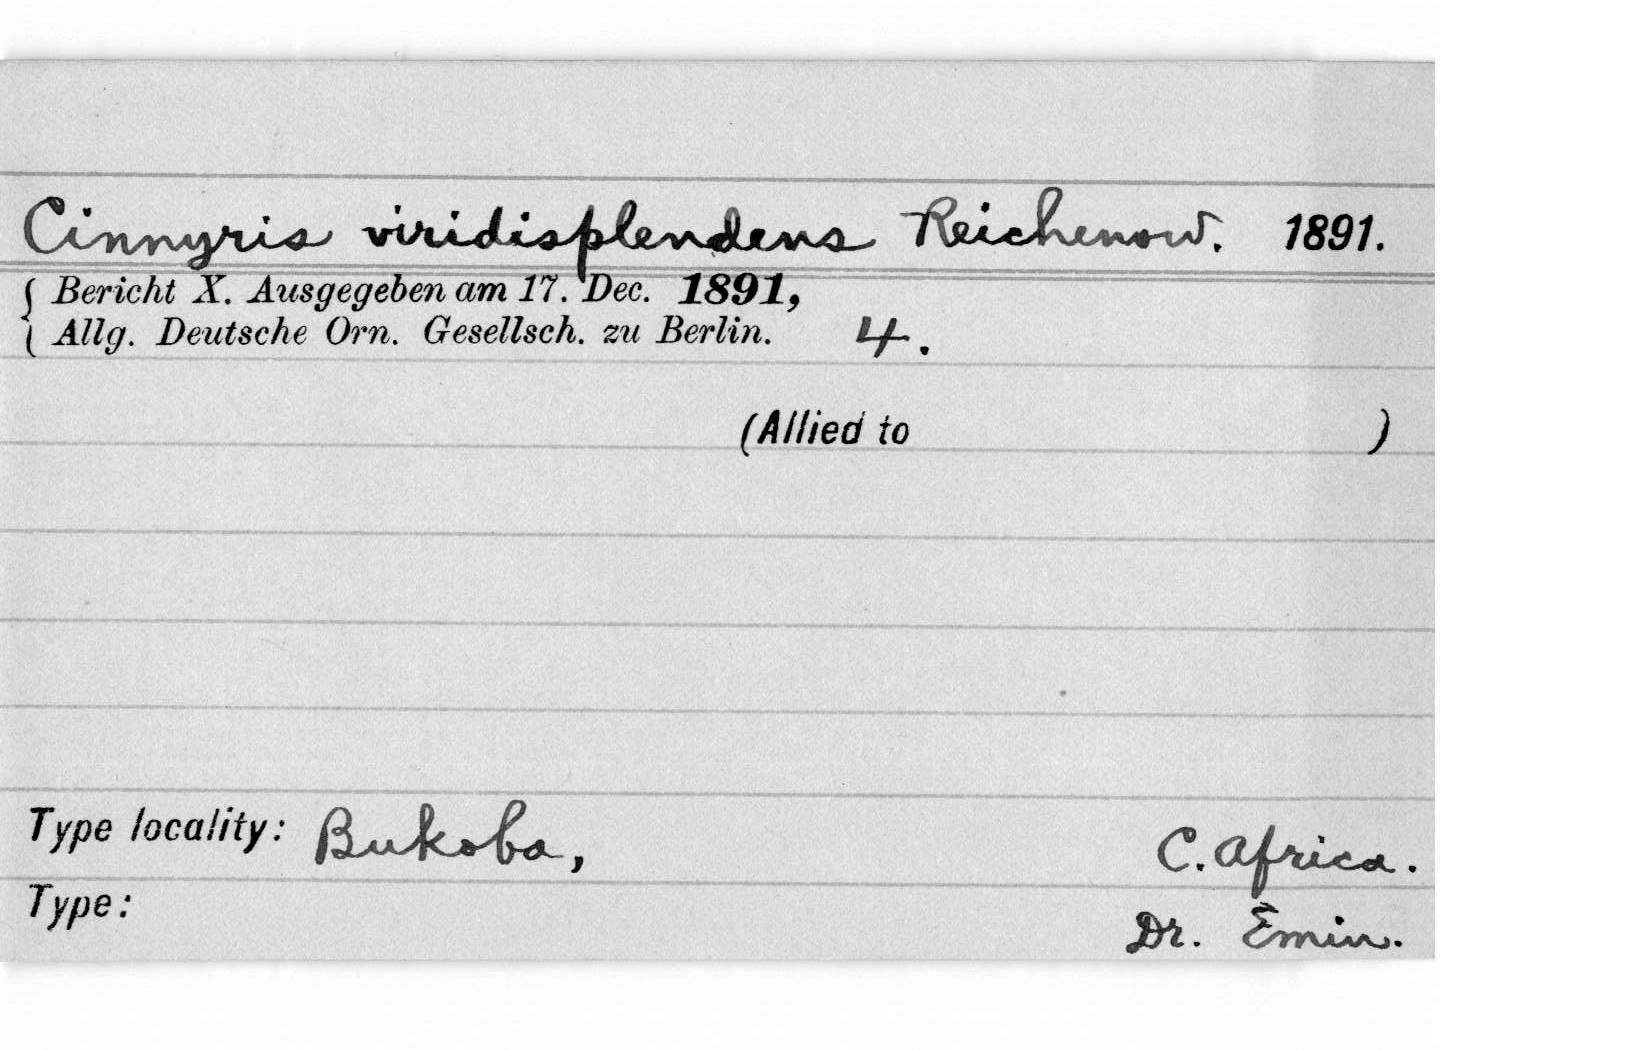 Cinnyris viridisplendens Reichenow. 1891.
{ Bericht X. Ausgegeben am 17. Dec. 1891,
Allg. Deutsche Orn. Gesellsch. zu Berlin. 4.
(Allied to )
Type locality: Bukoba, C. Africa.
Type: Dr. Emin.